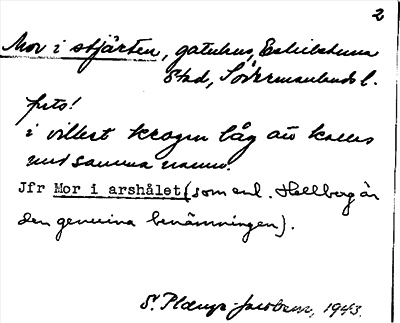 2
Mor i stjärten, gatuhus, Eskilstuna
stad, Södermanlands l.
hus!
i vilket krogen låg av
med samma namn.
Jfr Mor i arshålet (som enl. Hellberg är
den genuina benämningen).
S. Jacobson, 1943.